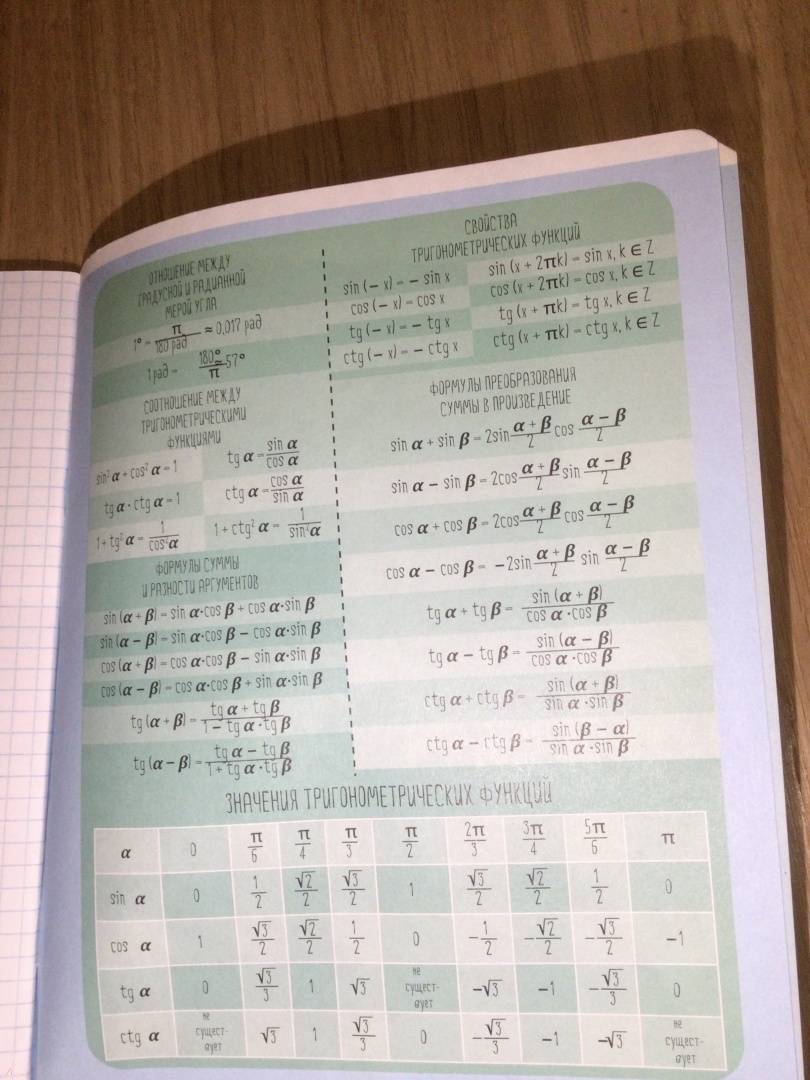 ОТНОШЕНИЕ МЕЖДУ
ГРАДУСНОЙ И РАДИАННОЙ
МЕРОЙ УГЛА
1° = π/180 рад ≈ 0,017 рад
1 рад = 180°/π ≈ 57°
СООТНОШЕНИЕ МЕЖДУ
ТРИГОНОМЕТРИЧЕСКИМИ
ФУНКЦИЯМИ
sin² α + cos² α = 1
tg α = sin α/cos α
tg α · ctg α = 1
ctg α = cos α/sin α
1 + tg² α = 1/cos² α
1 + ctg² α = 1/sin² α
ФОРМУЛЫ СУММЫ
И РАЗНОСТИ АРГУМЕНТОВ
sin (α + β) = sin α·cos β + cos α·sin β
sin (α − β) = sin α·cos β − cos α·sin β
cos (α + β) = cos α·cos β − sin α·sin β
cos (α − β) = cos α·cos β + sin α·sin β
tg (α + β) = (tg α + tg β)/(1 − tg α·tg β)
tg (α − β) = (tg α − tg β)/(1 + tg α·tg β)
СВОЙСТВА
ТРИГОНОМЕТРИЧЕСКИХ ФУНКЦИЙ
sin (− x) = − sin x sin (x + 2πk) = sin x, k ∈ Z
cos (− x) = cos x cos (x + 2πk) = cos x, k ∈ Z
tg (− x) = − tg x tg (x + πk) = tg x, k ∈ Z
ctg (− x) = − ctg x ctg (x + πk) = ctg x, k ∈ Z
ФОРМУЛЫ ПРЕОБРАЗОВАНИЯ
СУММЫ В ПРОИЗВЕДЕНИЕ
sin α + sin β = 2sin (α + β)/2 cos (α − β)/2
sin α − sin β = 2cos (α + β)/2 sin (α − β)/2
cos α + cos β = 2cos (α + β)/2 cos (α − β)/2
cos α − cos β = −2sin (α + β)/2 sin (α − β)/2
tg α + tg β = sin (α + β)/(cos α · cos β)
tg α − tg β = sin (α − β)/(cos α · cos β)
ctg α + ctg β = sin (α + β)/(sin α · sin β)
ctg α − ctg β = sin (β − α)/(sin α · sin β)
ЗНАЧЕНИЯ ТРИГОНОМЕТРИЧЕСКИХ ФУНКЦИЙ
α 0 π/6 π/4 π/3 π/2 2π/3 3π/4 5π/6 π
sin α 0 1/2 √2/2 √3/2 1 √3/2 √2/2 1/2 0
cos α 1 √3/2 √2/2 1/2 0 −1/2 −√2/2 −√3/2 −1
tg α 0 √3/3 1 √3 не сущест-вует −√3 −1 −√3/3 0
ctg α не сущест-вует √3 1 √3/3 0 −√3/3 −1 −√3 не сущест-вует